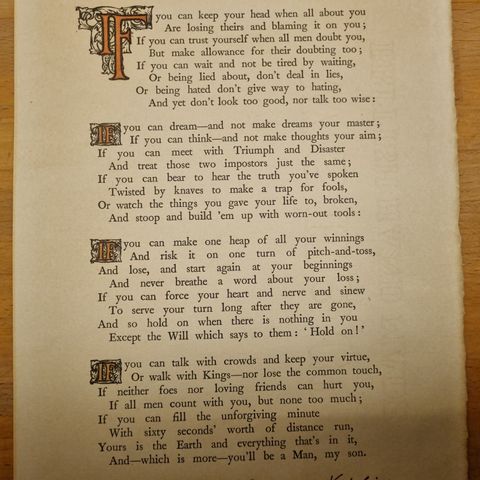 IF you can keep your head when all about you
Are losing theirs and blaming it on you;
If you can trust yourself when all men doubt you,
But make allowance for their doubting too;
If you can wait and not be tired by waiting,
Or being lied about, don't deal in lies,
Or being hated don't give way to hating,
And yet don't look too good, nor talk too wise:
IF you can dream—and not make dreams your master;
If you can think—and not make thoughts your aim;
If you can meet with Triumph and Disaster
And treat those two impostors just the same;
If you can bear to hear the truth you've spoken
Twisted by knaves to make a trap for fools,
Or watch the things you gave your life to, broken,
And stoop and build 'em up with worn-out tools:
IF you can make one heap of all your winnings
And risk it on one turn of pitch-and-toss,
And lose, and start again at your beginnings
And never breathe a word about your loss;
If you can force your heart and nerve and sinew
To serve your turn long after they are gone,
And so hold on when there is nothing in you
Except the Will which says to them: 'Hold on!'
IF you can talk with crowds and keep your virtue,
Or walk with Kings—nor lose the common touch,
If neither foes nor loving friends can hurt you,
If all men count with you, but none too much;
If you can fill the unforgiving minute
With sixty seconds' worth of distance run,
Yours is the Earth and everything that's in it,
And—which is more—you'll be a Man, my son.